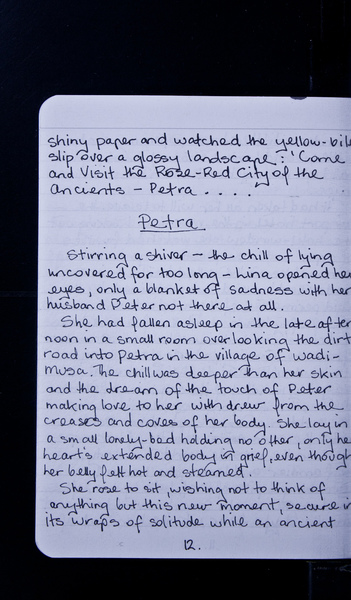 shiny paper and watched the yellow-bile
slip over a glossy landscape: 'Come
and Visit the Rose-Red City of the
Ancients - Petra . . . .
Petra
Stirring a shiver - the chill of lying
uncovered for too long - Lina opened her
eyes, only a blanket of sadness with her
husband Peter not there at all.
She had fallen asleep in the late after
noon in a small room overlooking the dirt
road into Petra in the village of Wadi-
musa. The chill was deeper than her skin
and the dream of the touch of Peter
making love to her with drew from the
creases and coves of her body. She lay in
a small lonely-bed holding no other, only he
heart's extended body in grief, even though
her belly felt hot and steamed.
She rose to sit, wishing not to think of
anything but this new moment, secure i
its wraps of solitude while an ancient
12.